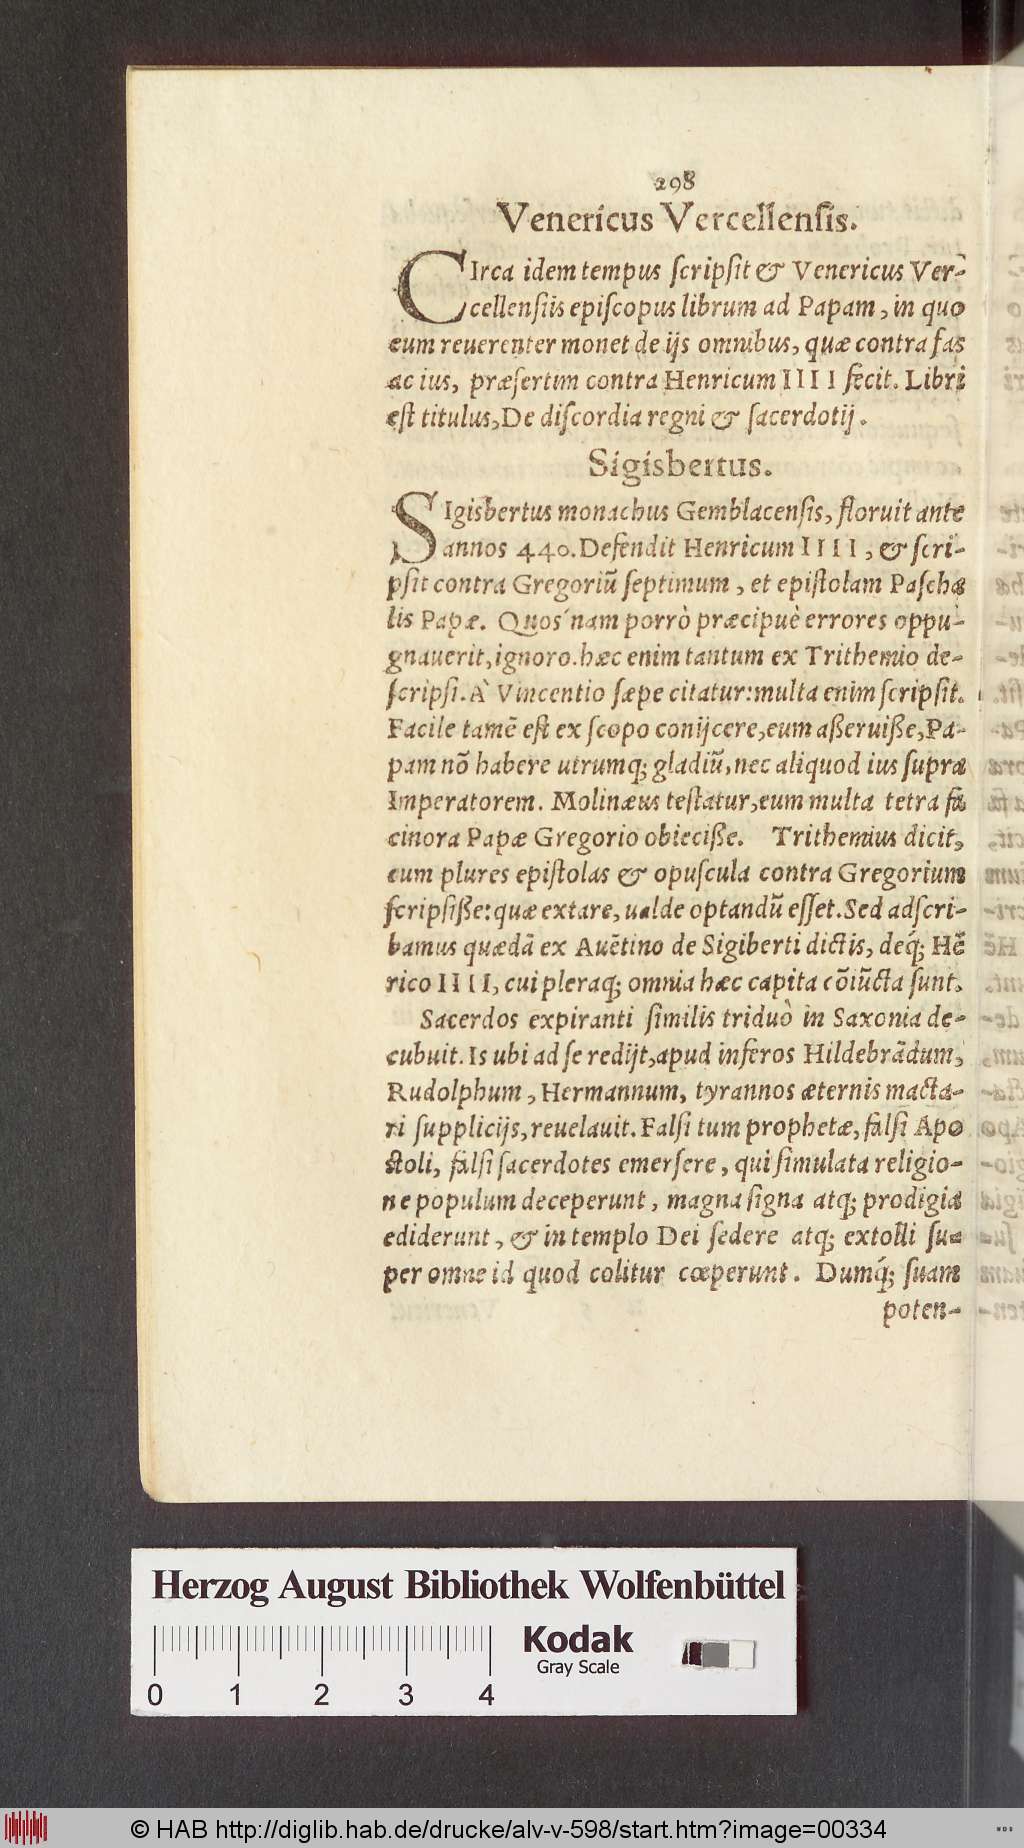 298
Venericus Vercellensis.
CIrca idem tempus scripsit & Venericus Ver-
cellensiis episcopus librum ad Papam, in quo
eum reuerenter monet de ijs omnibus, quæ contra fas
ac ius, præsertim contra Henricum IIII fecit. Libri
est titulus, De discordia regni & sacerdotij.
Sigisbertus.
SIgisbertus monachus Gemblacensis, floruit ante
annos 440. Defendit Henricum IIII, & scri-
psit contra Gregoriũ septimum, et epistolam Pascha
lis Papæ. Quos´nam porrò præcipuè errores oppu-
gnauerit, ignoro. hæc enim tantum ex Trithemio de-
scripsi. A` Vincentio sæpe citatur: multa enim scripsit.
Facile tamẽ est ex scopo conijcere, eum aßeruiße, Pa-
pam nõ habere utrumq; gladiũ, nec aliquod ius supra
Imperatorem. Molinæus testatur, eum multa tetra fa
cinora Papæ Gregorio obieciße. Trithemius dicit,
eum plures epistolas & opuscula contra Gregorium
scripsiße: quæ extare, ualde optandũ esset. Sed adscri-
bamus quædã ex Auẽtino de Sigiberti dictis, deq́; Hẽ
rico IIII, cui pleraq; omnia hæc capita cõiũcta sunt.
Sacerdos expiranti similis triduò in Saxonia de-
cubuit. Is ubi ad se redijt, apud inferos Hildebrãdum,
Rudolphum, Hermannum, tyrannos æternis macta-
ri supplicijs, reuelauit. Falsi tum prophetæ, falsi Apo
stoli, falsi sacerdotes emersere, qui simulata religio-
ne populum deceperunt, magna signa atq; prodigia
ediderunt, & in templo Dei sedere atq; extolli su-
per omne id quod colitur cœperunt. Dumq́; suam
poten-
Herzog August Bibliothek Wolfenbüttel
Kodak
Gray Scale
0 1 2 3 4
© HAB http://diglib.hab.de/drucke/alv-v-598/start.htm?image=00334